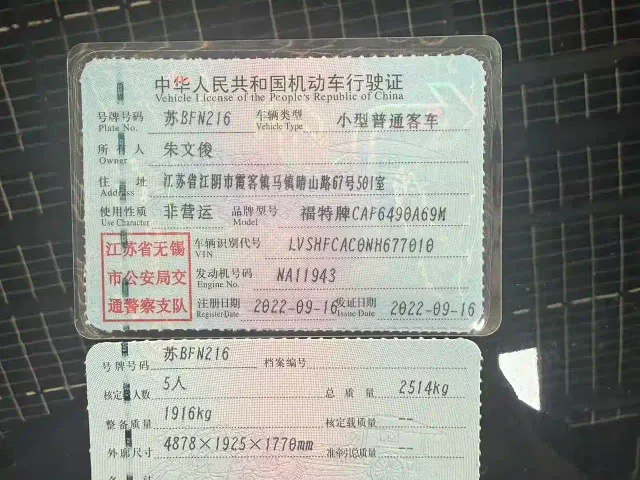 中华人民共和国机动车行驶证
Vehicle License of the People's Republic of China
号牌号码 苏BFN216 车辆类型 小型普通客车
Plate No. Vehicle Type
所有人 朱文俊
Owner
住址 江苏省江阴市霞客镇马镇晴山路67号501室
Address
使用性质 非营运 品牌型号 福特牌CAF6490A69M
Use Character Model
江苏省无锡
市公安局交
通警察支队
车辆识别代号 LVSHFCAC0NH677010
VIN
发动机号码 NA11943
Engine No.
注册日期 2022-09-16 发证日期 2022-09-16
Register Date Issue Date
号牌号码 苏BFN216 档案编号
核定人数 5人 总质量 2514kg
整备质量 1916kg 核定载质量 --
外廓尺寸 4878×1925×1770mm 准牵引总质量 --